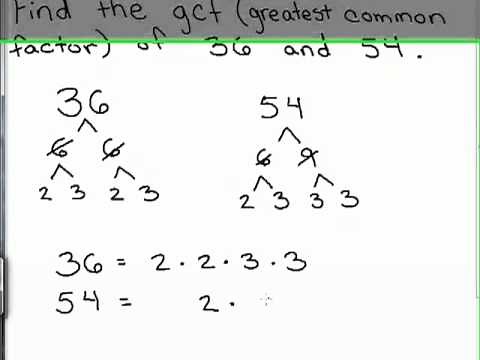 Find the gcf (greatest common
factor) of 36 and 54.
36 54
6 6 6 9
2 3 2 3 2 3 3 3
36 = 2 · 2 · 3 · 3
54 = 2 ·